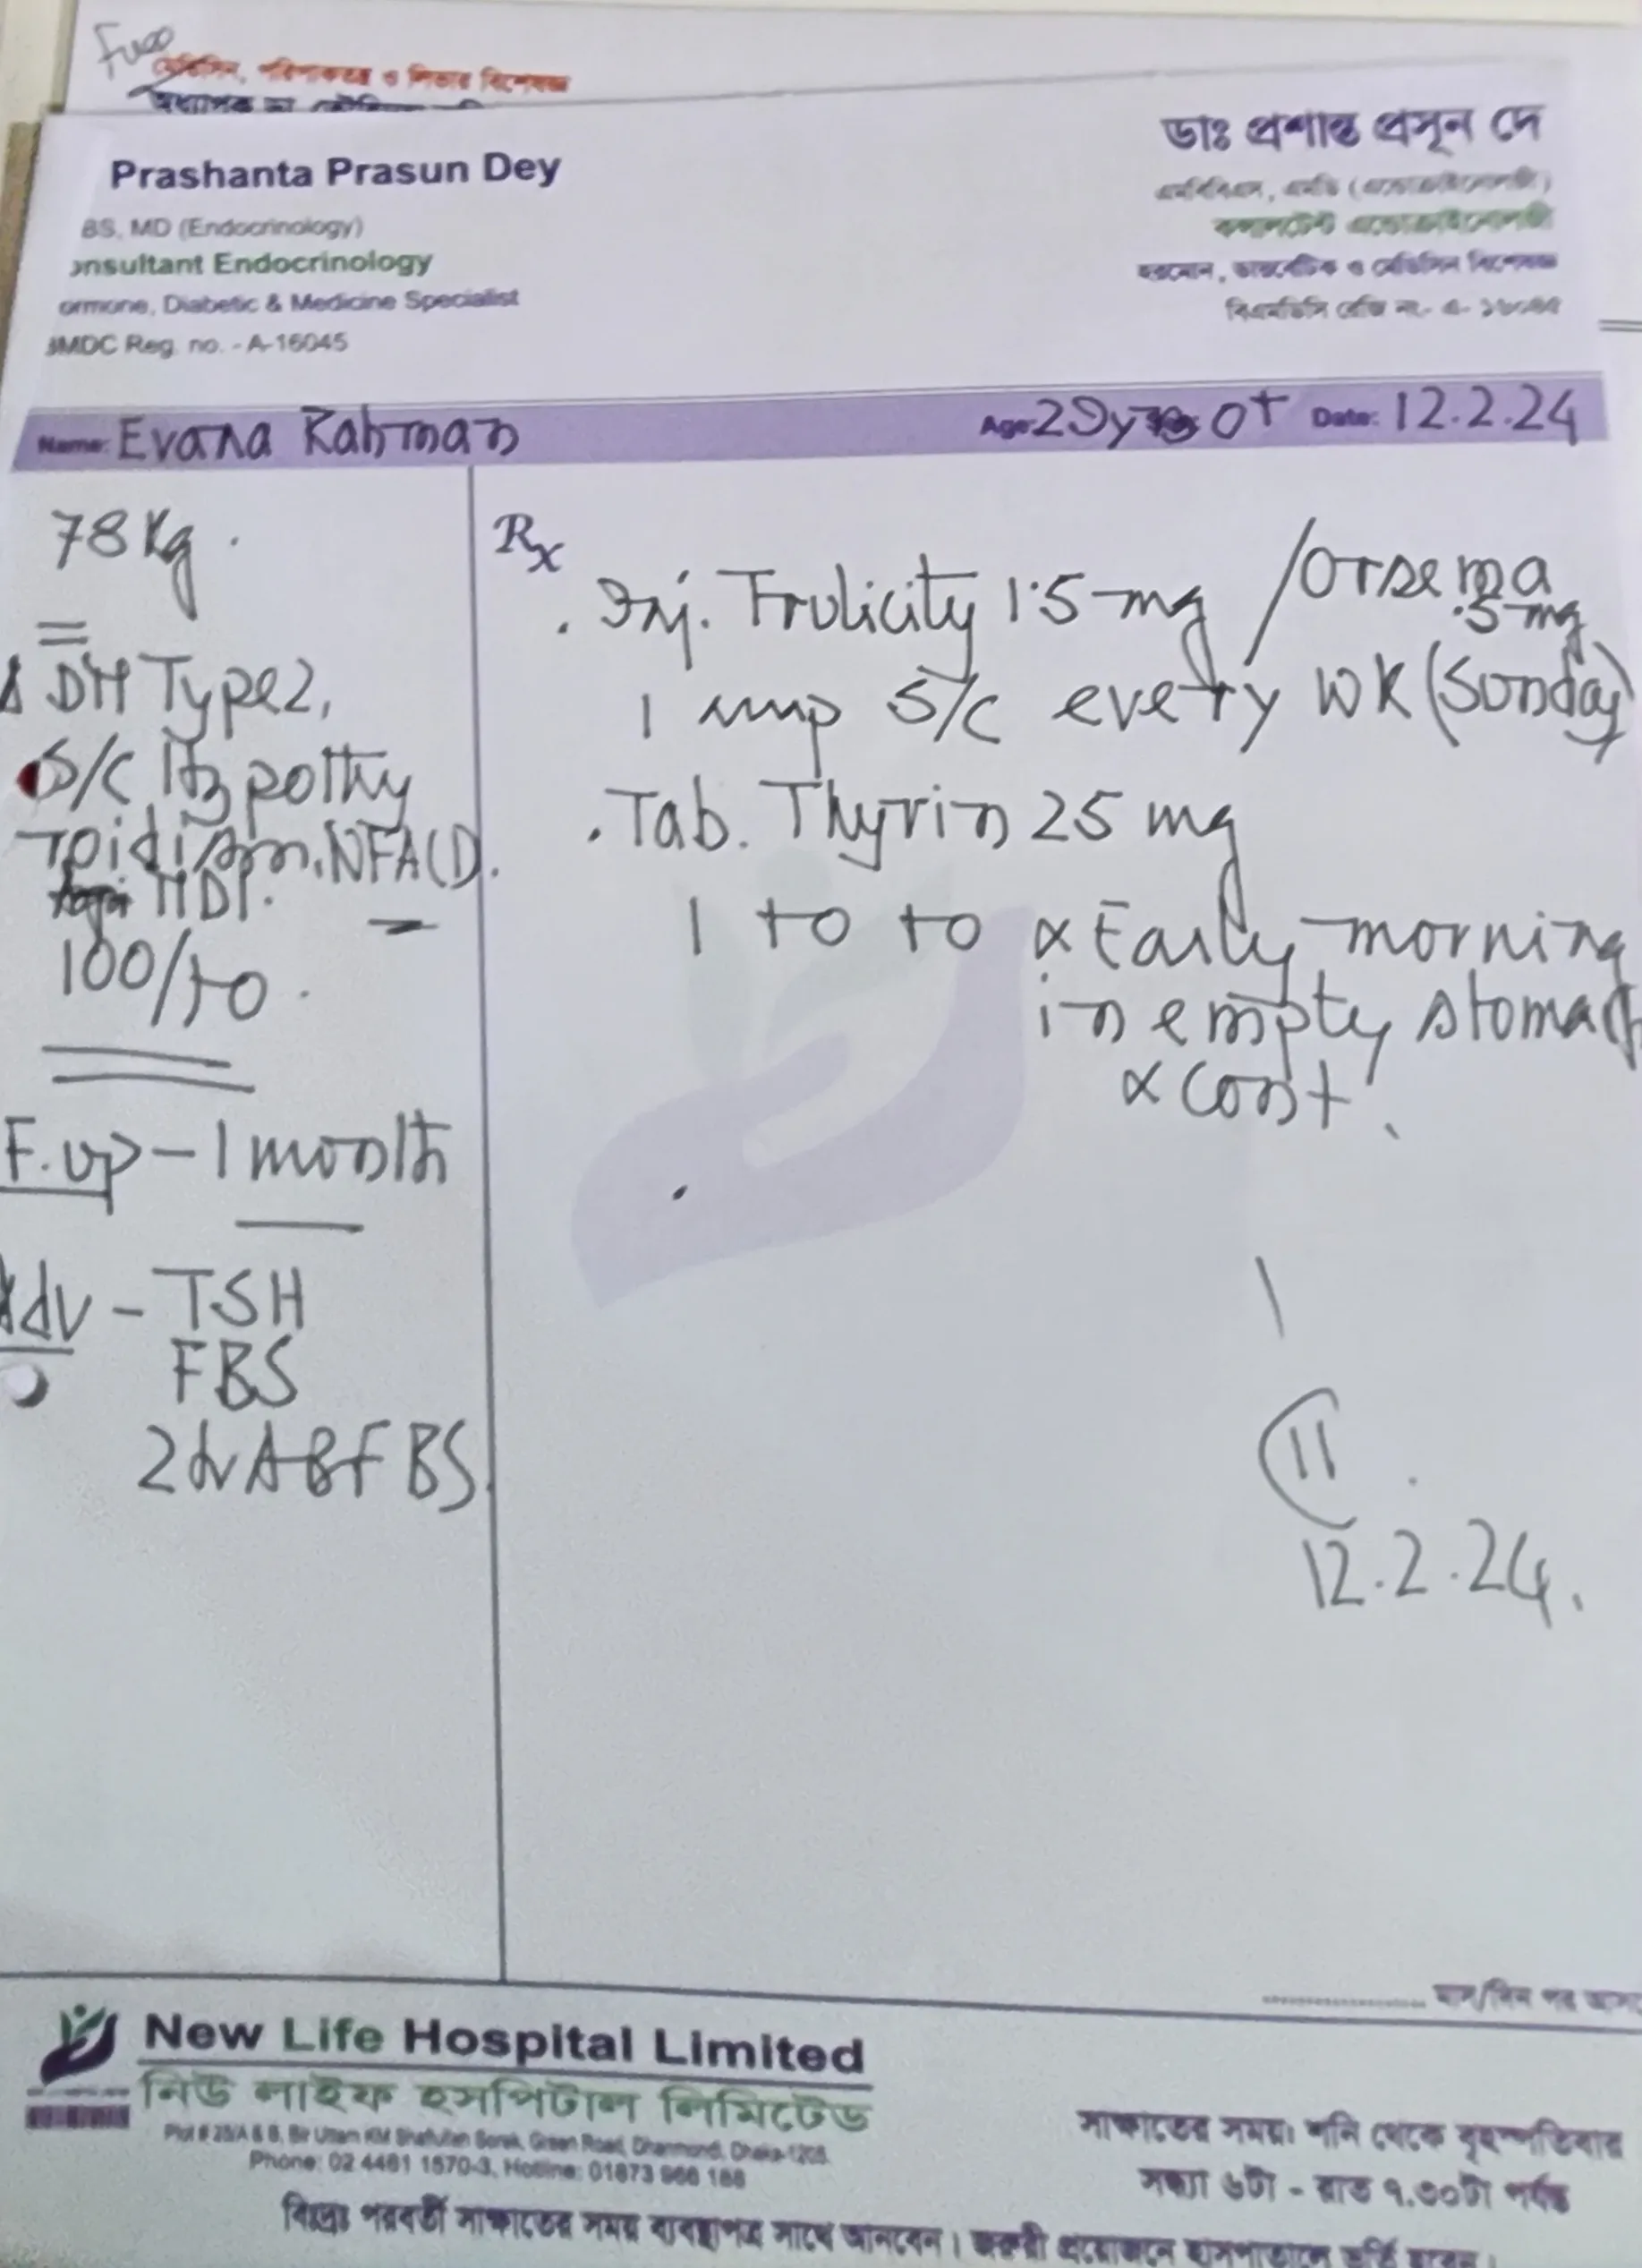 মেডিসিন, পরিপাকতন্ত্র ও লিভার বিশেষজ্ঞ
Prashanta Prasun Dey
BS, MD (Endocrinology)
onsultant Endocrinology
ormone, Diabetic & Medicine Specialist
BMDC Reg. no. - A-16045
ডাঃ প্রশান্ত প্রসূন দে
এমবিবিএস, এমডি (এন্ডোক্রাইনোলজী)
কনসালটেন্ট এন্ডোক্রাইনোলজী
হরমোন, ডায়াবেটিক ও মেডিসিন বিশেষজ্ঞ
বিএমডিসি রেজি নং- এ-
Name: Evana Rahman Age: 29 yrs Date: 12.2.24
78 Kg.
Δ DM Type 2,
S/C Hypothy
roidism, NFALD.
100/70.
F. up - 1 month
Adv - TSH
FBS
2hr ABF BS.
Rx
. Inj. Trulicity 1.5 mg / Orsema
.5 mg
1 amp S/C every wk (Sunday)
. Tab. Thyrin 25 mg
1 + 0 + 0 × Early morning
in empty stomach
× Cont.
12.2.24.
New Life Hospital Limited
নিউ লাইফ হসপিটাল লিমিটেড
Plot # 25/A & B, Bir Uttam KM Shafullah Sorak, Green Road, Dhanmondi, Dhaka-1205.
Phone: 02 4461 1570-3, Hotline: 01873 966 188
সাক্ষাতের সময়ঃ শনি থেকে বৃহস্পতিবার
সন্ধ্যা ৬টা - রাত ৭.৩০টা পর্যন্ত
বিঃদ্রঃ পরবর্তী সাক্ষাতের সময় ব্যবস্থাপত্র সাথে আনবেন। জরুরী প্রয়োজনে হাসপাতালে ভর্তি হবেন।